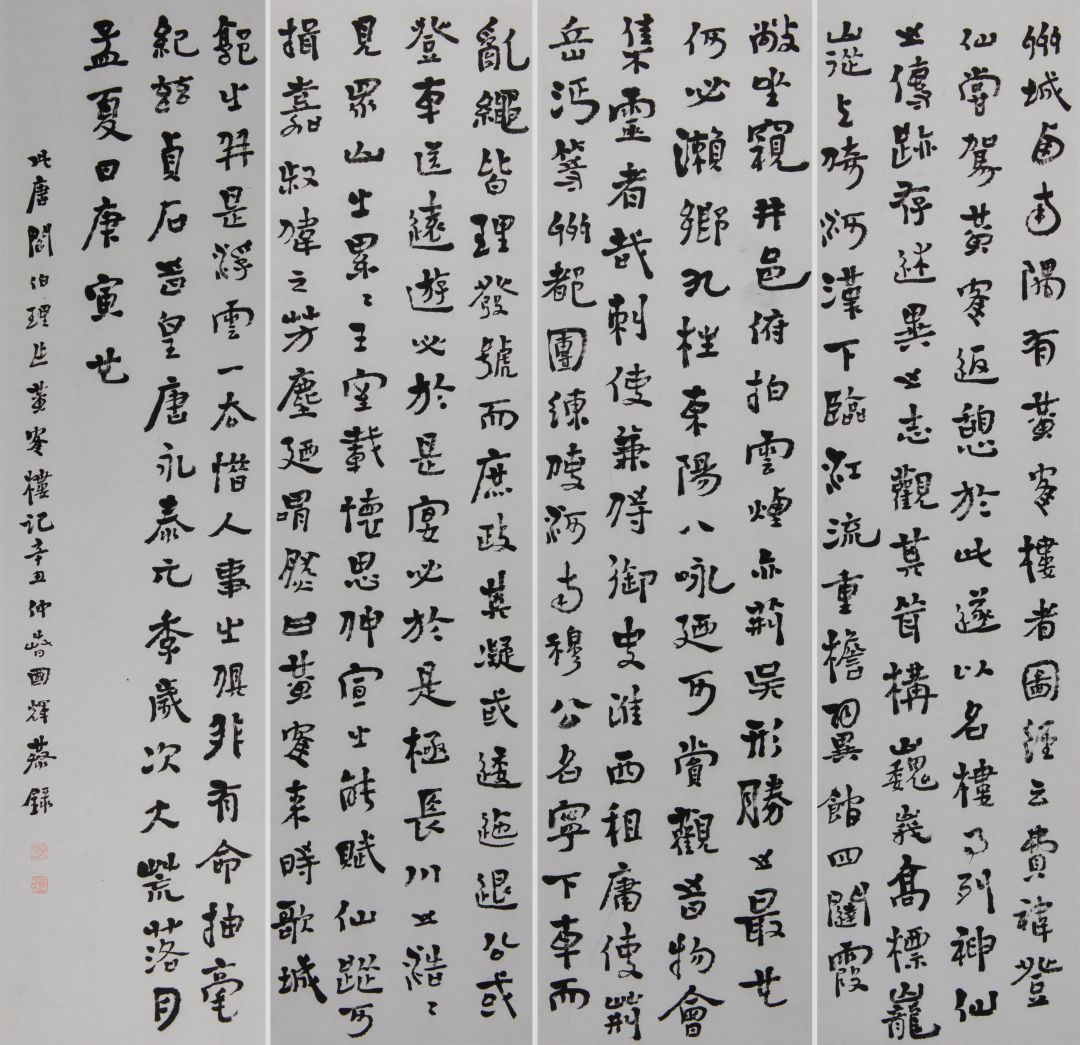 州城西南隅有黃鶴樓者圖經云費禕登
仙嘗駕黃鶴返憩於此遂以名樓事列神仙
之傳跡存述異之志觀其聳構巍峩高標巃
嵷上倚河漢下臨江流重檐翼館四闥霞
敞坐窺井邑俯拍雲煙亦荊吳形勝之最也
何必瀨鄉九柱東陽八詠廼可賞觀時物會
集靈者哉刺使兼侍御史淮西租庸使荊
岳沔等州都團練使河南穆公名寧下車而
亂繩皆理發號而庶政其凝或逶迤退公或
登車送遠遊必於是宴必於是極長川之浩〻
見眾山之纍〻王室載懷思仲宣之能賦仙蹤可
揖嘉叔偉之芳塵廼喟然曰黃鶴來時歌城
郭之並是浮雲一去惜人事之俱非有命抽毫
紀茲貞石時皇唐永泰元年歲次大荒落月
孟夏日庚寅也
此唐閻伯理作黃鶴樓記辛丑仲春國輝蔡錄